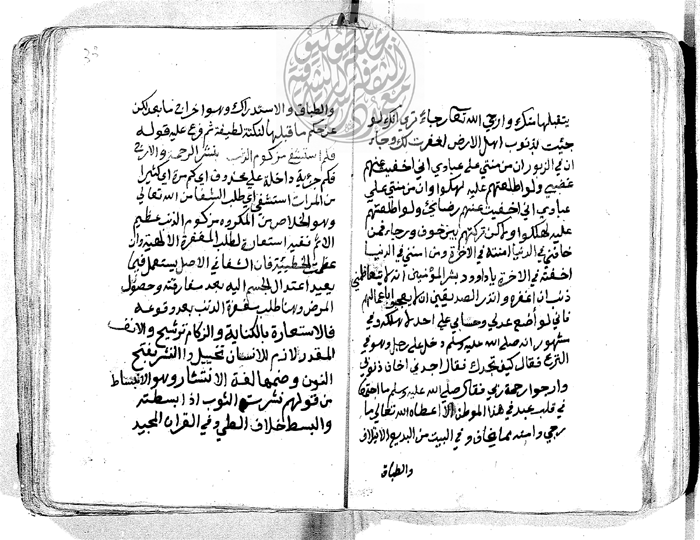 يتقبلها منك وارجى الله تعالى رجاء ترى انك لو
جئت بذنوب اهل الارض لغفرت لك وجاء
ان في الزبور ان من منتي على عبادي اني اخفيت عنهم
غضبي ولو اطلعتهم عليه لهلكوا وان من منتي على
عبادي اني اخفيت عنهم رضائي ولو اطلعتهم
عليه لهلكوا ولكن تركتهم بين خوف ورجاء فمن
خافني في الدنيا امنته في الاخرة ومن امنني في الدنيا
اخفته في الاخرة يا داوود بشر المؤمنين انه لا يتعاظمني
ذنب ان اغفره وانذر الصديقين ان لا يعجبوا باعمالهم
فاني لو اضع عدلي وحسابي على احد الا هلك وفي
مشهور انه صلى الله عليه وسلم دخل على رجل وهو في
النزع فقال كيف تجدك فقال اجدني اخاف ذنوبي
وارجوا رحمة ربي فقال صلى الله عليه وسلم ما اجتمعا
في قلب عبد في هذا الموطن الا اعطاه الله تعالى ما
رجى وامنه مما يخاف وفي البيت من البديع الايتلاف
والطباق
33
والطباق والاستدراك وهو اخراج ما بعد لكن
عن حكم ما قبلها لنكتة لطيفة ثم فرع عليه قوله
فلم استشفي مزكوم الذنب بنشر الرحمة والارج
فكم خبرية داخلة على محذوف اي كم مرة اي كثيرا
من المرات استشفى اي طلب الشفا من الله تعالى
وهو الخلاص من المكروه مزكوم الذنب عظيم
الاثم ففيه استعارة لطلب المغفرة الالهية وان
عظمت الخطيئة فان الشفا في الاصل يستعمل فيما
يعيد اعتدال الجسم اليه بعد مفارقته وحصول
المرض وهنا طلب مغفرة الذنب بعد وقوعه
فالاستعارة بالكناية والزكام ترشيح والانف
المقدر لازم للانسان تخييل والنشر بفتح
النون وضمها لغة الانتشار وهو الانبساط
من قولهم نشرت الثوب اذا بسطته
والبسط خلاف الطي وفي القران المجيد